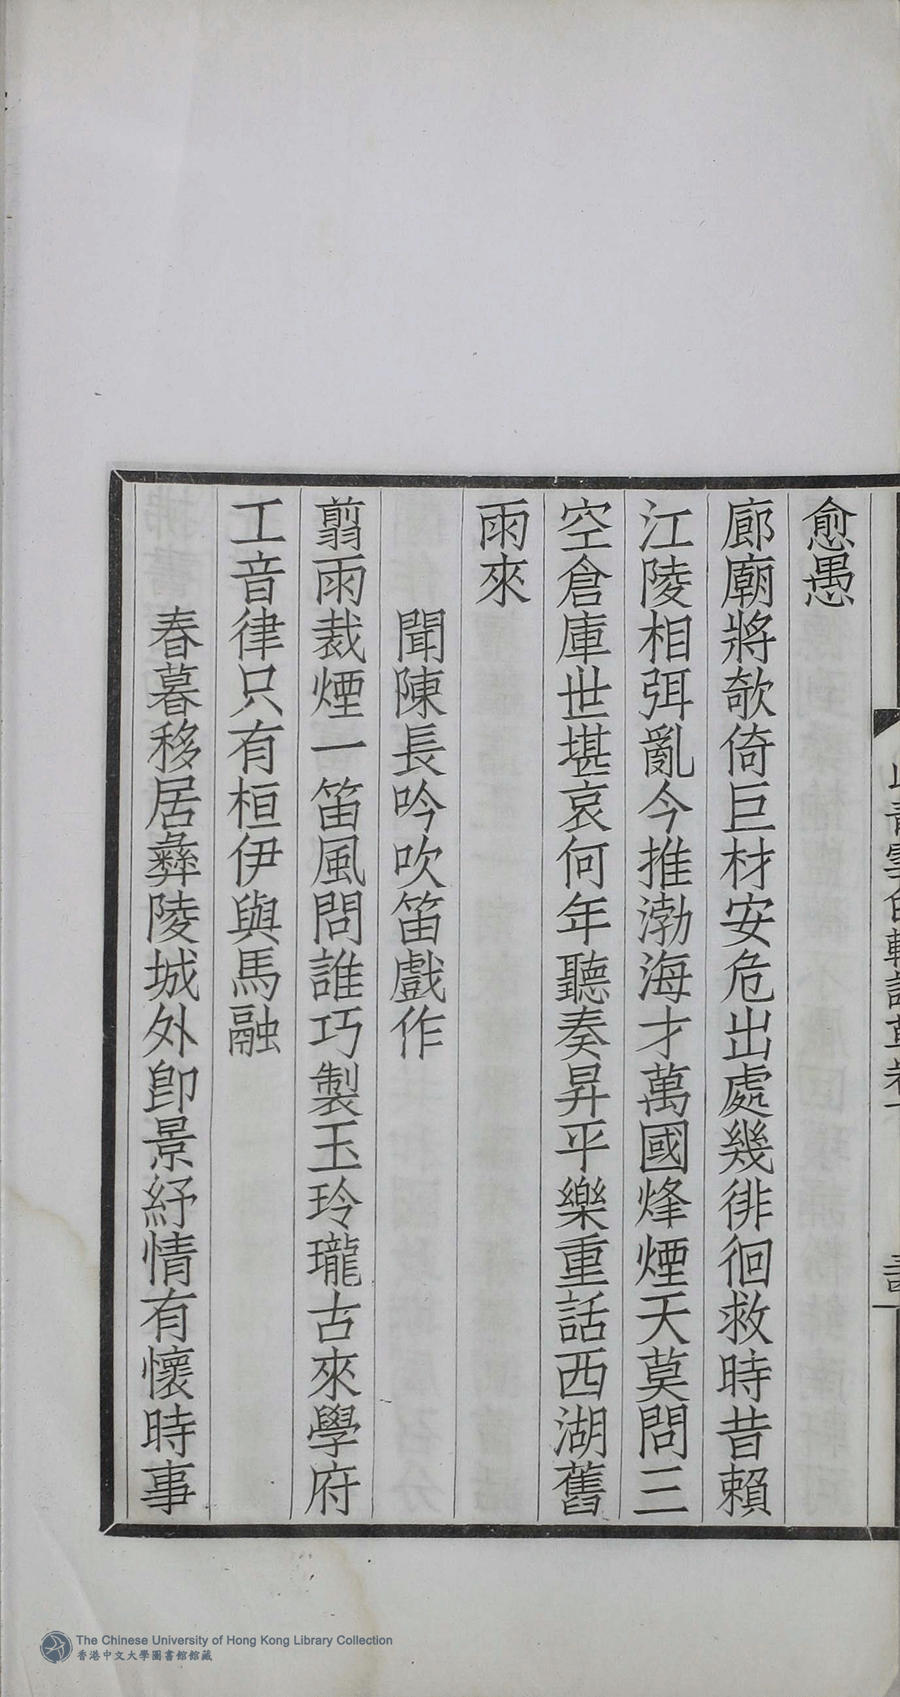 愈愚
廊廟將欹倚巨材安危出處幾徘徊救時昔賴
江陵相弭亂今推渤海才萬國烽煙天莫問三
空倉庫世堪哀何年聽奏昇平樂重話西湖舊
雨來
聞陳長吟吹笛戲作
翦雨裁煙一笛風問誰巧製玉玲瓏古來學府
工音律只有桓伊與馬融
春暮移居彝陵城外卽景紓情有懷時事
The Chinese University of Hong Kong Library Collection
香港中文大學圖書館館藏